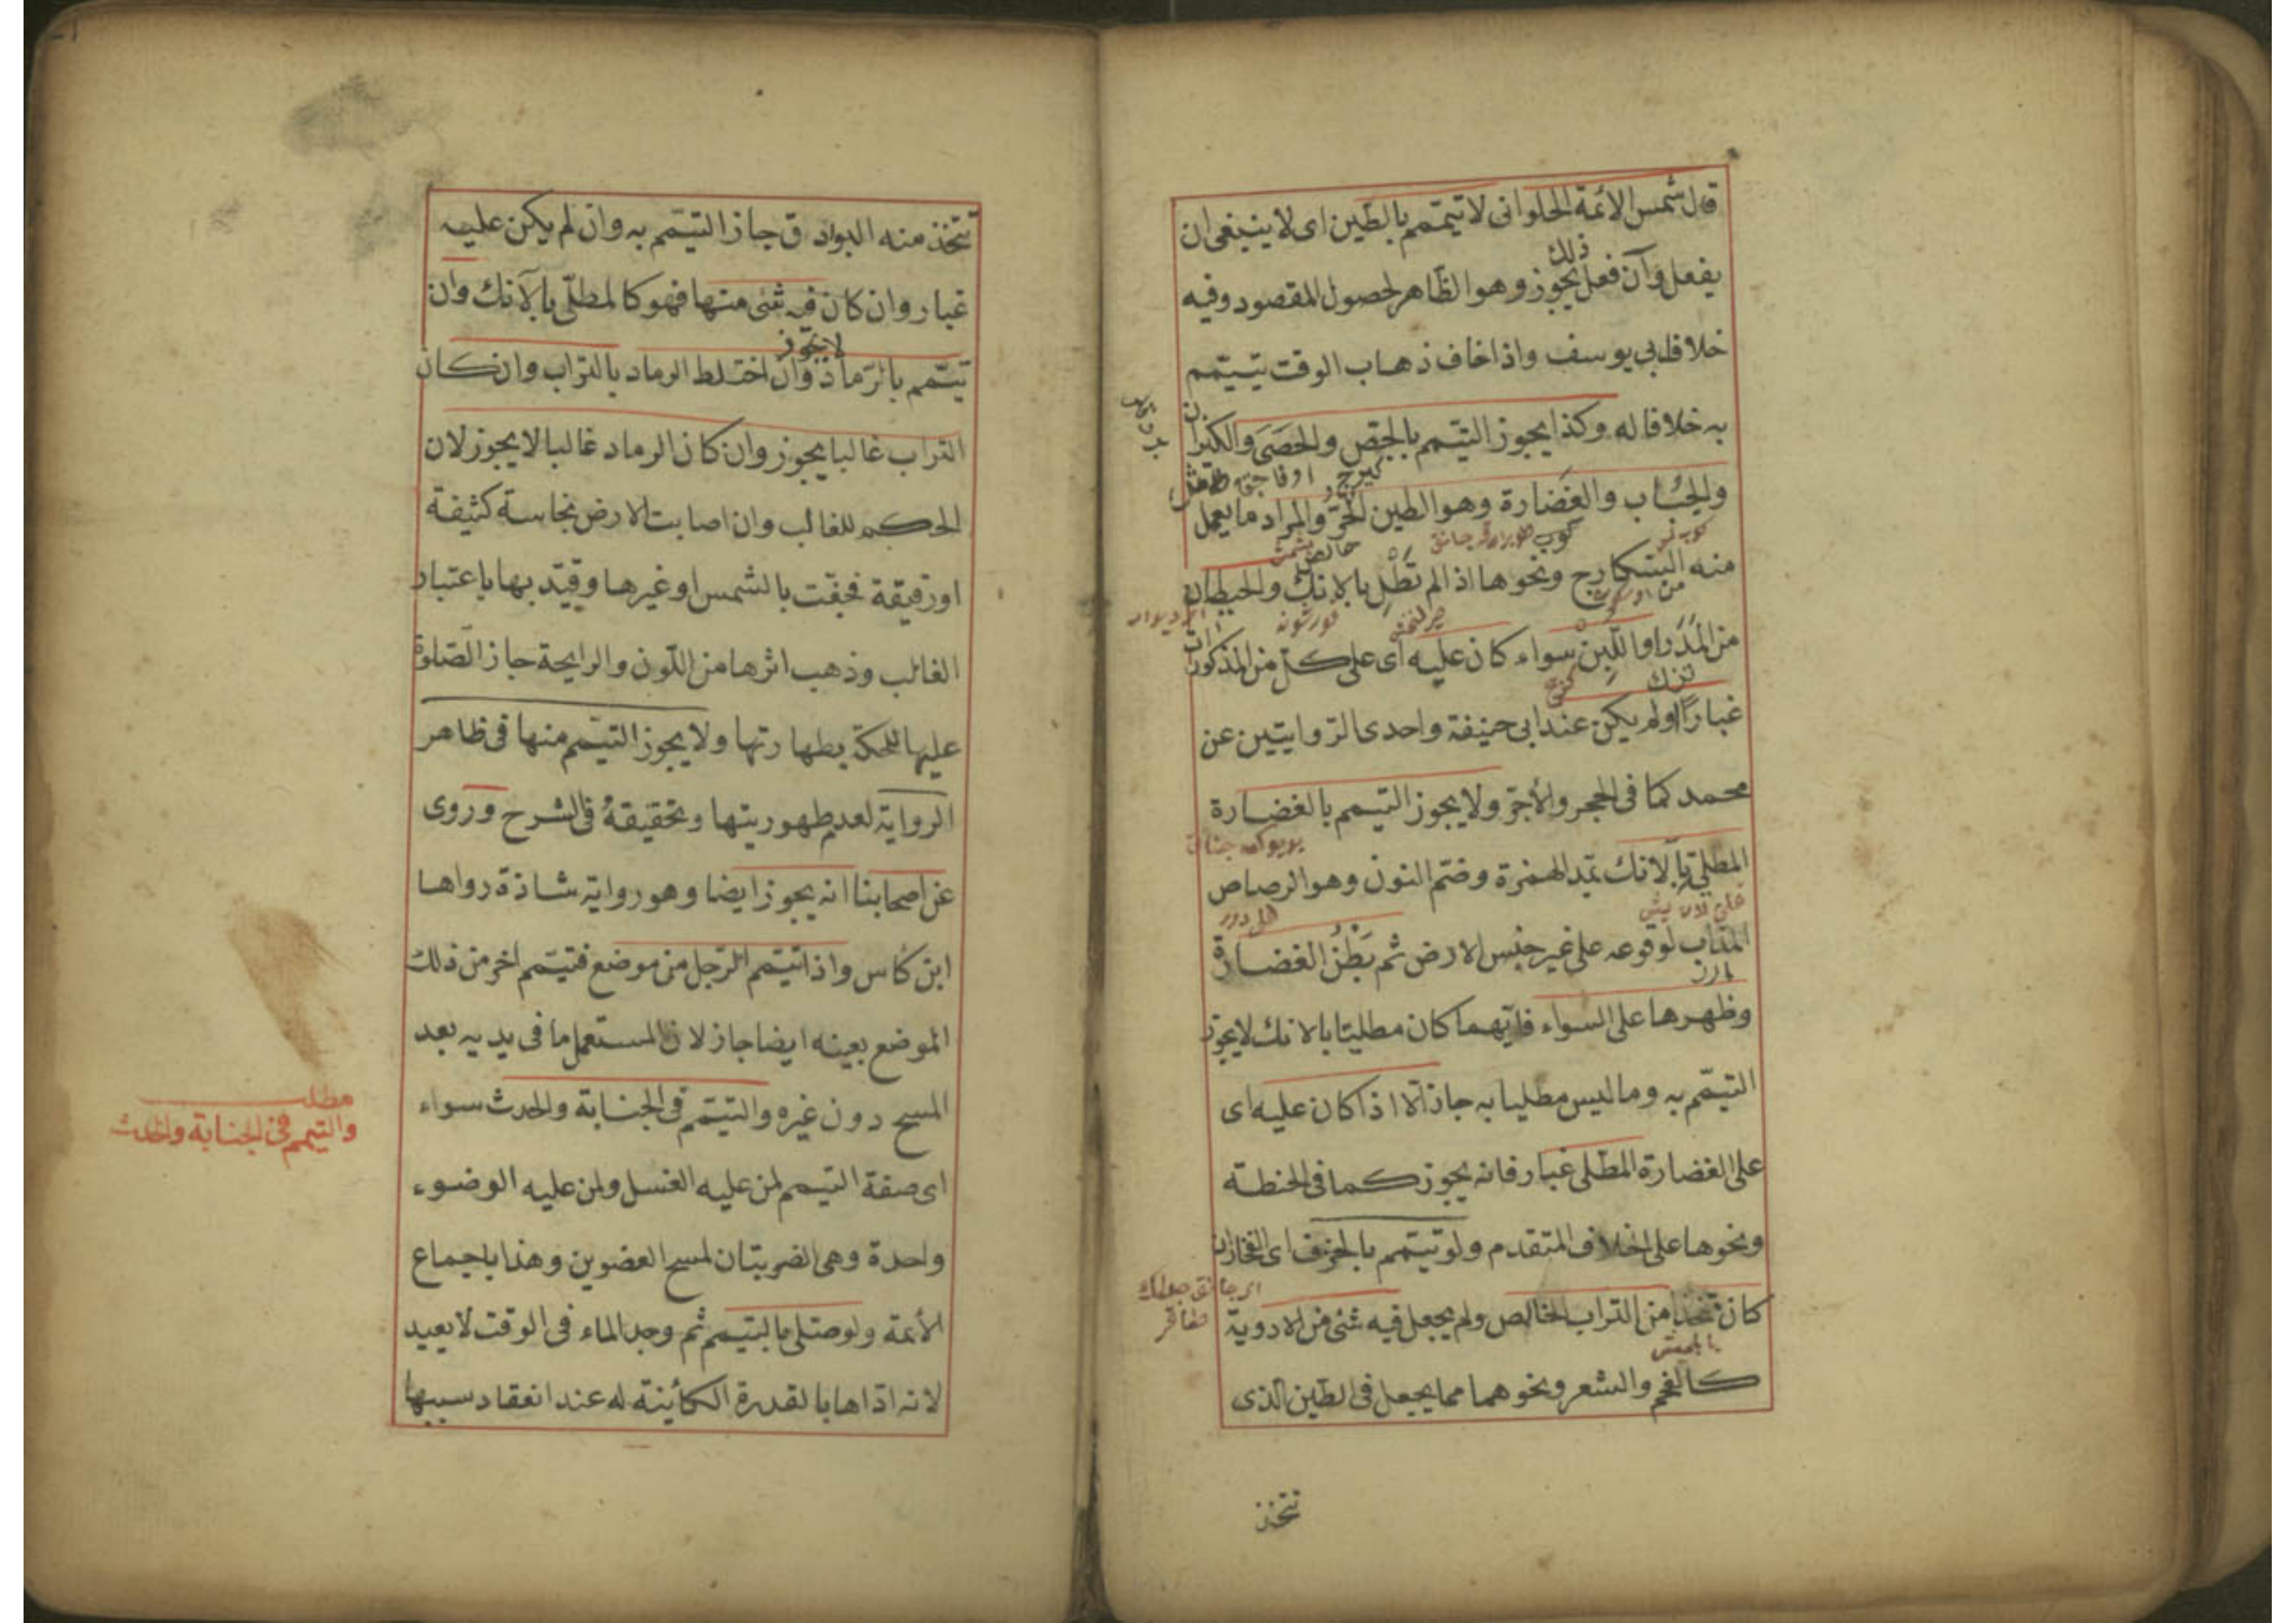 قال شمس الائمة الحلوانى لا تيمّم بالطّين اى لا ينبغى ان
يفعل ذلك وان فعل يجوز وهو الظّاهر لحصول المقصود وفيه
خلاف ابى يوسف واذا خاف ذهاب الوقت تيمّم
به خلافا له وكذا يجوز التيمّم بالجصّ والحصى والكيزان
والحباب والغضارة وهو الطين الحرّ والمراد ما يعمل
كيرج
منه البسكارج ونحوها اذا لم تطل بالانك والحيطان
خالص
من المدر او اللّبن سواء كان عليه اى على كلّ من المذكورات
غبارًا او لم يكن عند ابى حنيفة واحدى الرّوايتين عن
محمد كما فى الحجر والأجرّ ولا يجوز التيمم بالغضارة
المطلىّ بالآنك بمدّ الهمزة وضمّ النون وهو الرصاص
المذاب لوقوعه على غير جنس الارض ثم بَطْنُ الغضارة
وظهرها على السواء فايّهما كان مطليّا بالانك لا يجوز
التيمّم به وما ليس مطليا به جاز الّا اذا كان عليه اى
على الغضارة المطلى غبار فانه يجوز كما فى الحنطة
ونحوها على الخلاف المتقدم ولو تيمّم بالخزف اى الفخار ان
كان متّخذا من التراب الخالص ولم يجعل فيه شئ من الادوية
كالفحم والشعر ونحوهما مما يجعل فى الطّين الّذى
تتخذ
تتخذ منه البوادق جاز التيمّم به وان لم يكن عليه
غبار وان كان فيه شئ منها فهو كالمطلّى بالآنك وان
تيمّم بالرّماد لا يجوز وان اختلط الرماد بالتراب وان كان
التراب غالبا يجوز وان كان الرماد غالبا لا يجوز لان
الحكم للغالب وان اصابت الارض نجاسة كثيفة
او رقيقة فجفّت بالشمس او غيرها وقيّد بها باعتبار
الغالب وذهب اثرها من اللّون والرايحة جاز الصّلوة
عليها للحكم بطهارتها ولا يجوز التيمّم منها فى ظاهر
الرواية لعدم طهوريتها وتحقيقهُ فى الشرح وروى
عن اصحابنا انه يجوز ايضا وهو رواية شاذة رواها
ابن كاس واذا تيمّم الرّجل من موضع فتيمّم اخر من ذلك
الموضع بعينه ايضا جاز لان المستعمل ما فى يديه بعد
المسح دون غيره والتيمّم فى الجنابة والحدث سواء
اى صفة التيمم لمن عليه الغسل ولمن عليه الوضوء
واحدة وهى الضربتان لمسح العضوين وهذا باجماع
الأئمة ولو صلّى بالتيمم ثم وجد الماء فى الوقت لا يعيد
لانه ادّاها بالقدرة الكائينة له عند انعقاد سببها
مطلب
والتيمم فى الجنابة والحدث